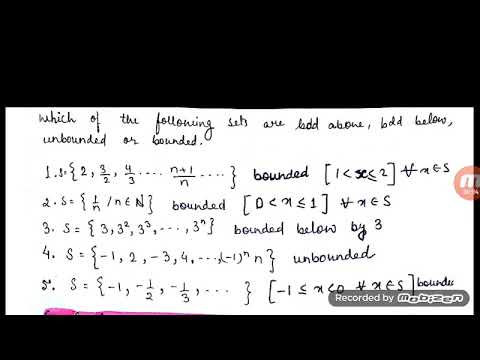 which of the following sets are bdd above, bdd below,
unbounded or bounded.
1. S={2, 3/2, 4/3 .... n+1/n ....} bounded [1<x≤2] ∀ x∈S
2. S = {1/n / n∈N} bounded [0<x≤1] ∀ x∈S
3. S = {3, 3², 3³, ..., 3ⁿ} bounded below by 3
4. S = {-1, 2, -3, 4, ..., (-1)ⁿ n} unbounded
5. S = {-1, -1/2, -1/3, ...} [-1 ≤ x<0 ∀ x∈S] bounde
Recorded by
MOBIZEN